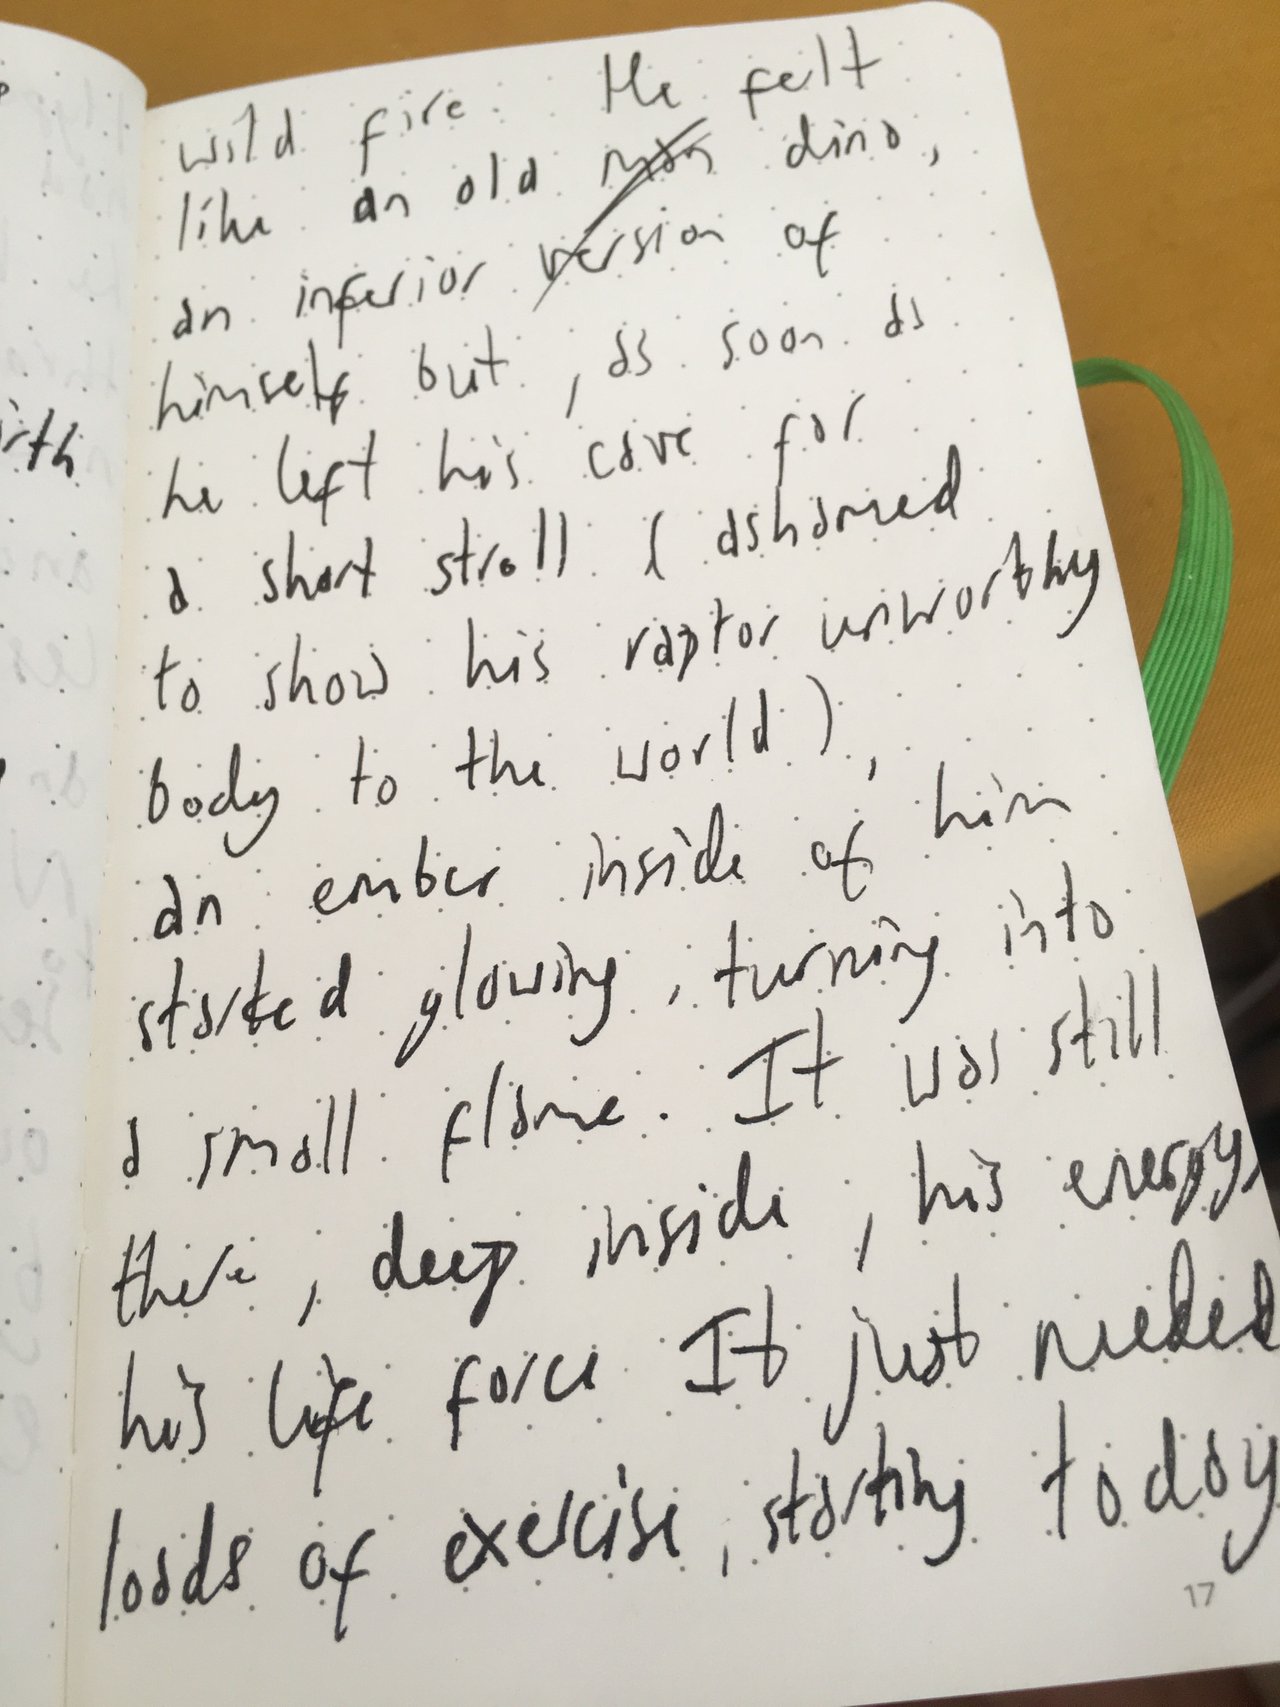 wild fire. He felt
like an old man dino,
an inferior version of
himself but, as soon as
he left his cave for
a short stroll (ashamed
to show his raptor unworthy
body to the world),
an ember inside of him
started glowing, turning into
a small flame. It was still
there, deep inside, his energy,
his life force It just needed
loads of exercise, starting today
17
irth